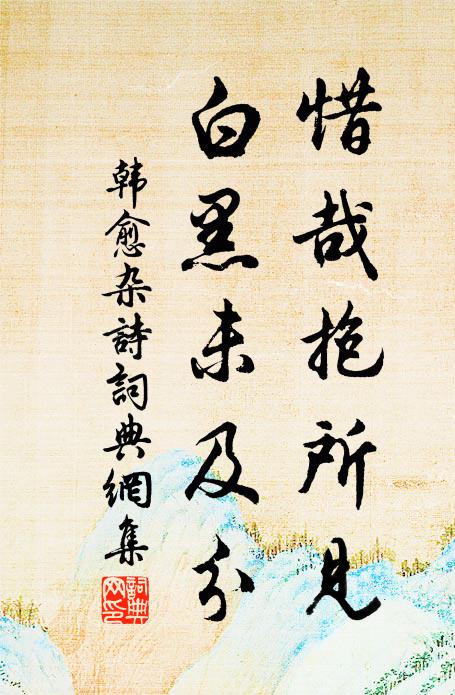 惜哉抱所見
白黑未及分
韩愈杂詩詞典網集
詞典